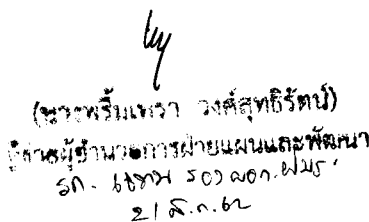 (นางพริ้มเพรา วงศ์สุทธิรัตน์)
ผู้ช่วยผู้อำนวยการฝ่ายแผนและพัฒนา
รก. แทน รอง ผอก.
21 ส.ค. 62